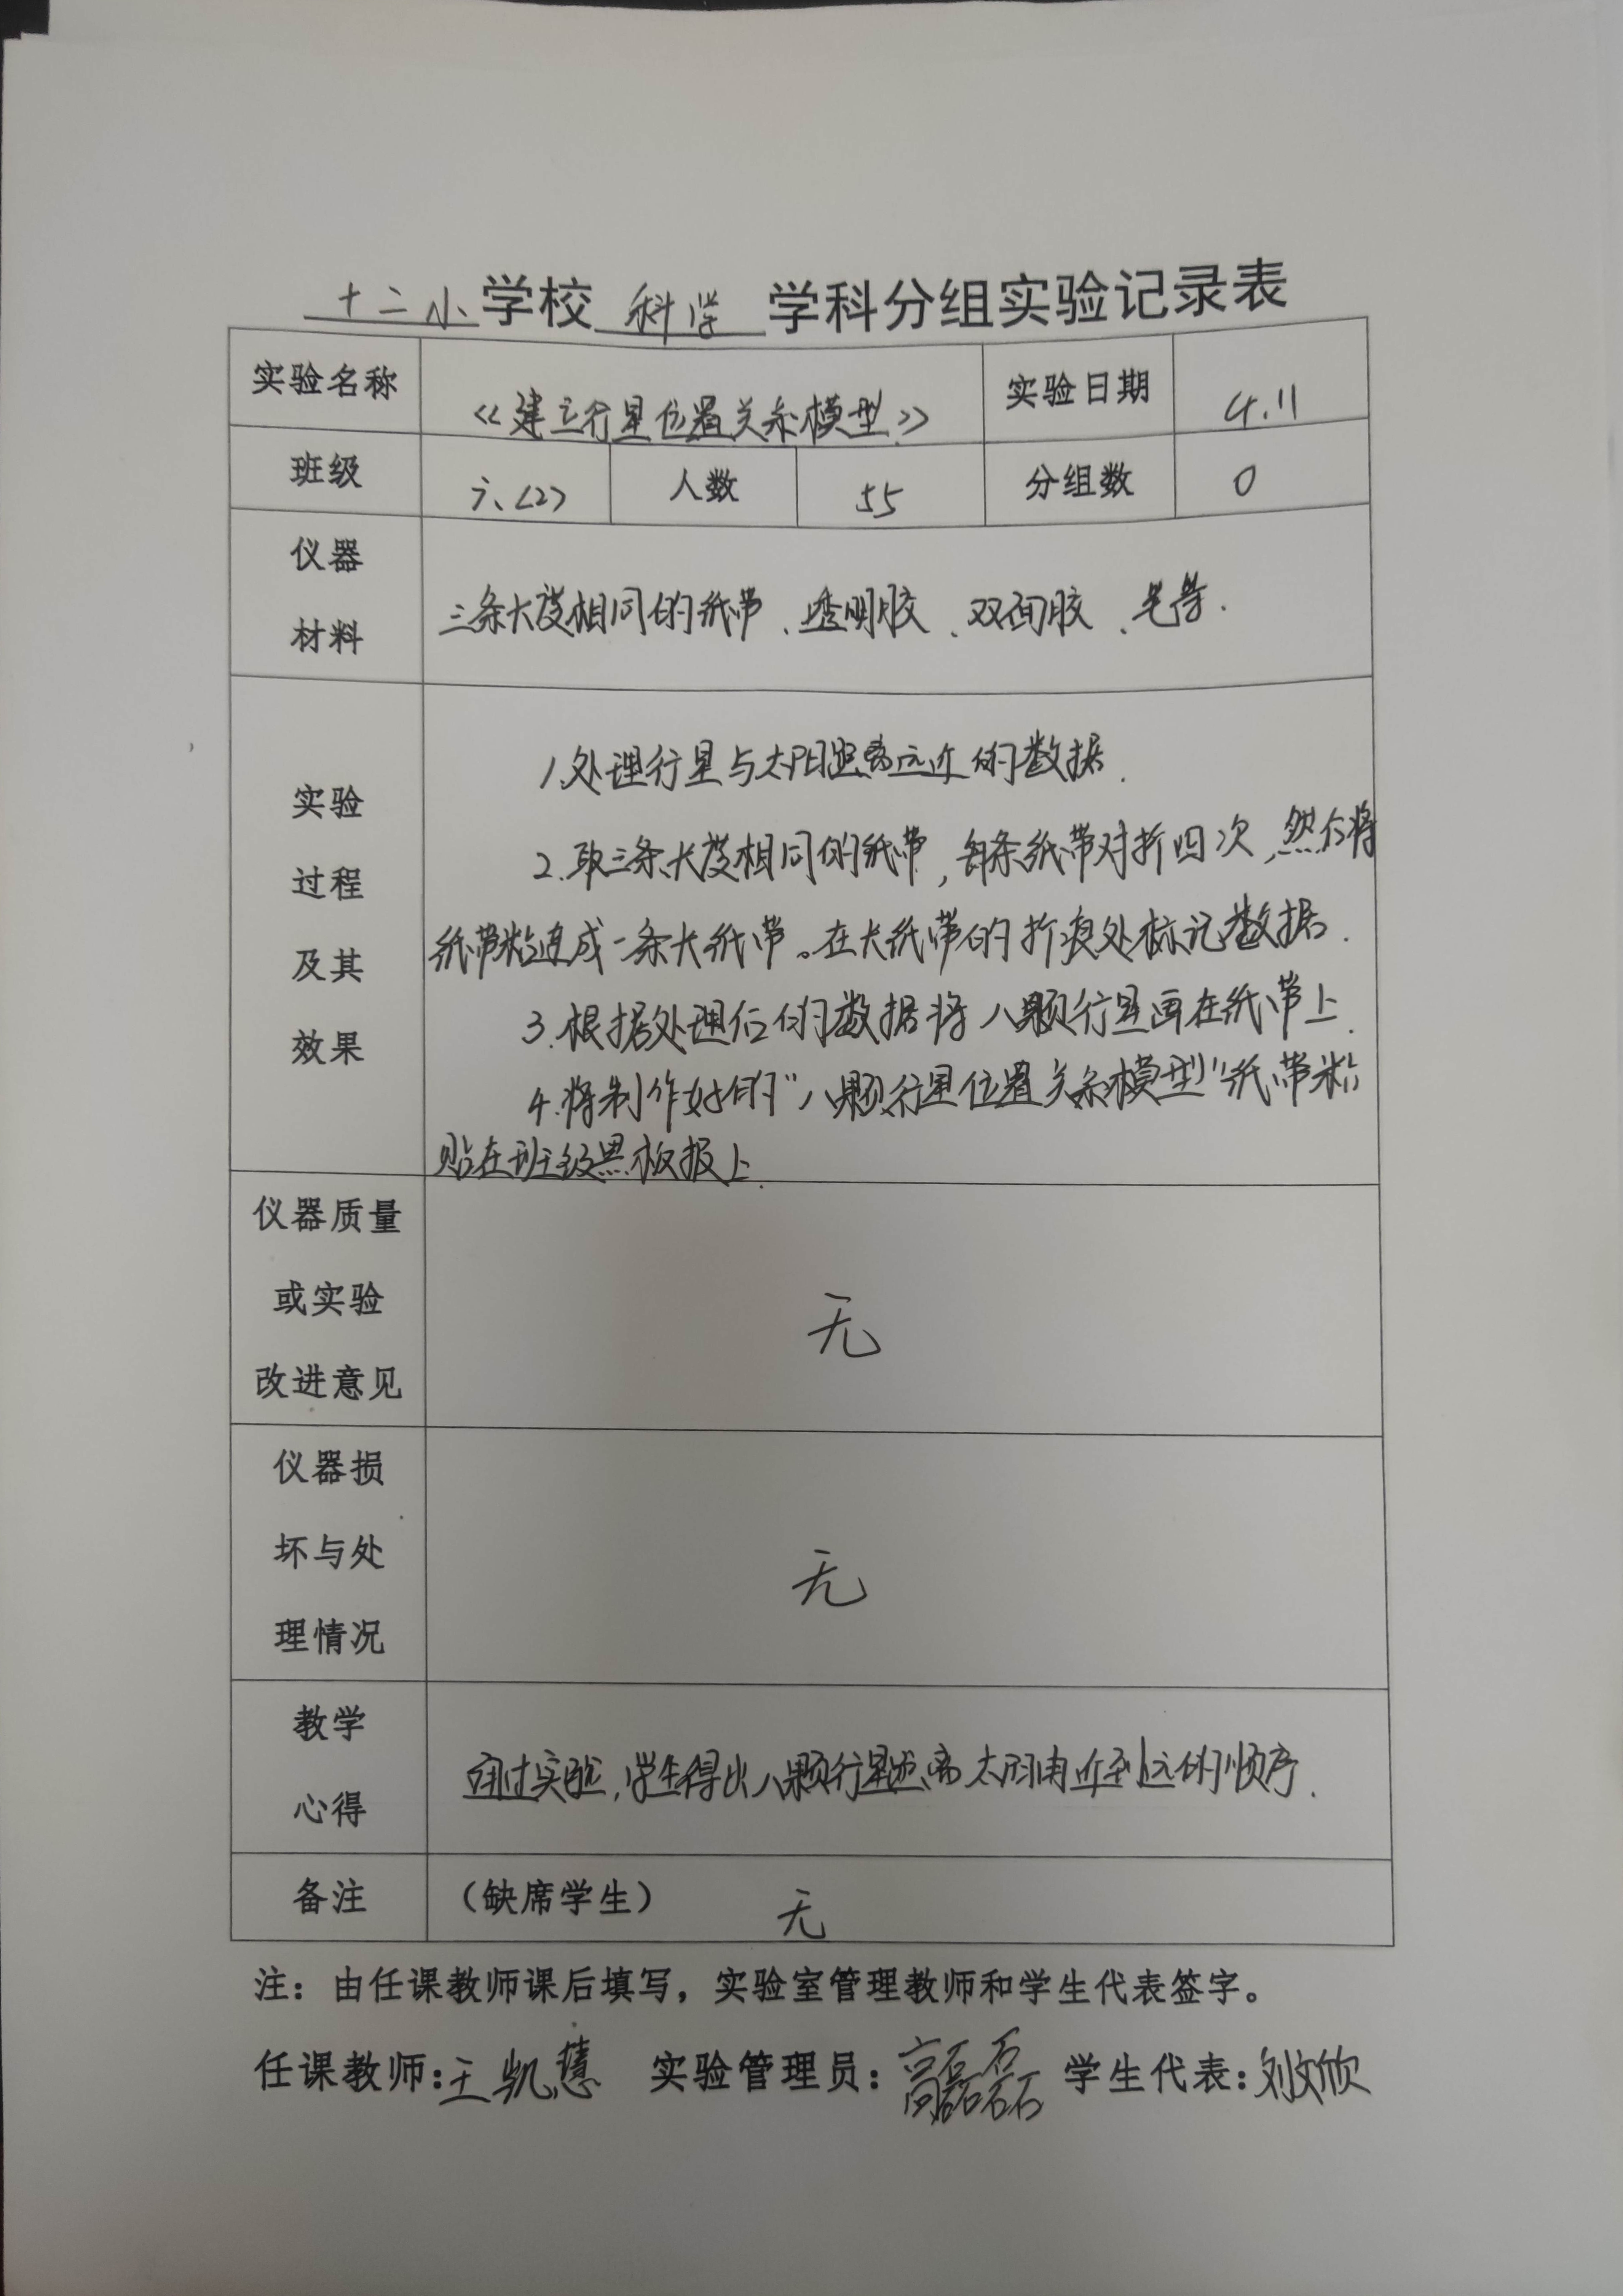 十二小学校 科学 学科分组实验记录表
实验名称 《建立行星位置关系模型》 实验日期 4.11
班级 六、<2> 人数 55 分组数 0
仪器
材料
三条长度相同的纸带、透明胶、双面胶、笔等.
实验
过程
及其
效果
1.处理行星与太阳距离远近的数据.
2.取三条长度相同的纸带,每条纸带对折四次,然后将
纸带粘连成一条大纸带。在大纸带的折痕处标记数据.
3.根据处理后的数据将八颗行星画在纸带上.
4.将制作好的"八颗行星位置关系模型"纸带粘
贴在班级黑板报上.
仪器质量
或实验
改进意见
无
仪器损
坏与处
理情况
无
教学
心得
通过实验,学生得出八颗行星距离太阳由近到远的顺序.
备注 (缺席学生) 无
注:由任课教师课后填写,实验室管理教师和学生代表签字。
任课教师:王凯慧 实验管理员:高磊磊 学生代表:刘文欣